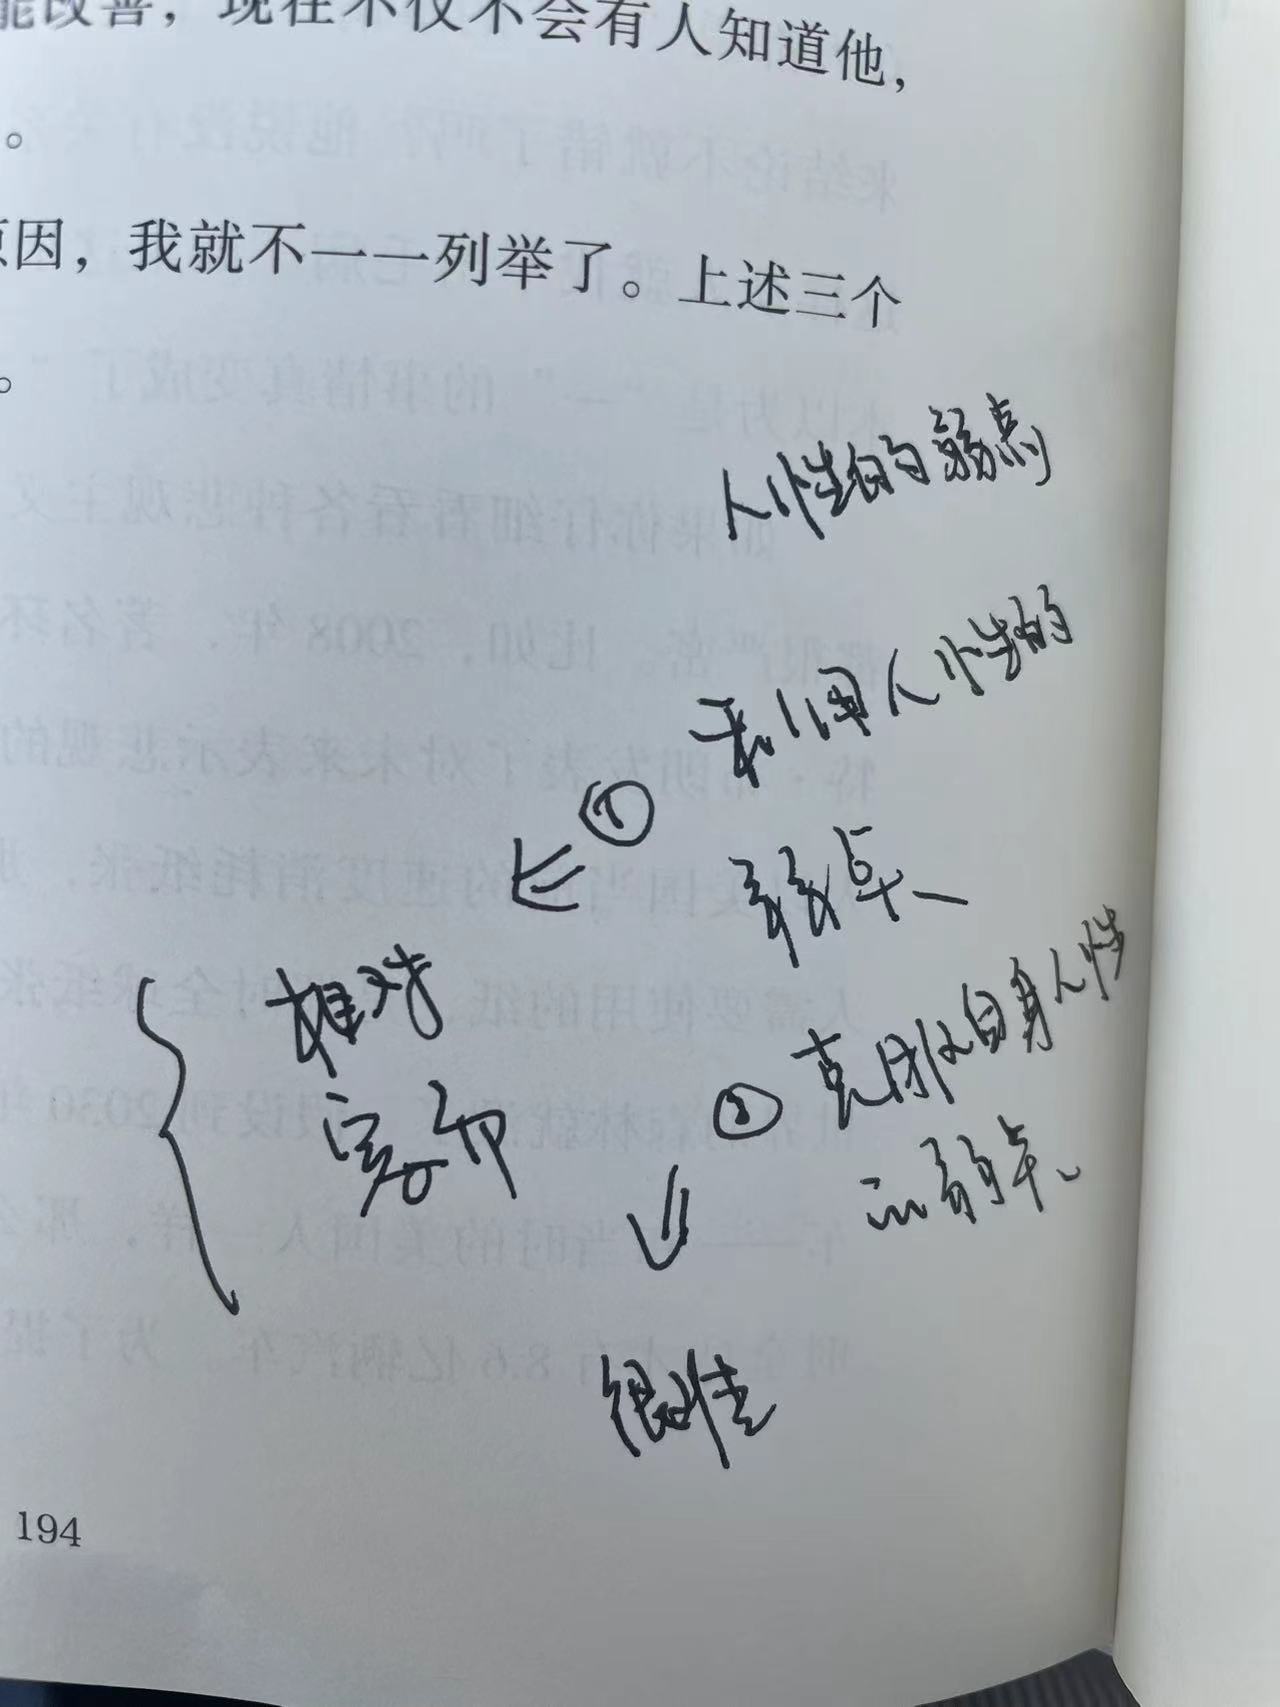 能改善，现在不仅不会有人知道他，
。
原因，我就不一一列举了。上述三个
。
人性的弱点
① 利用人性的
弱点
相对
容易
② 克服自身人性
的弱点
很难
194